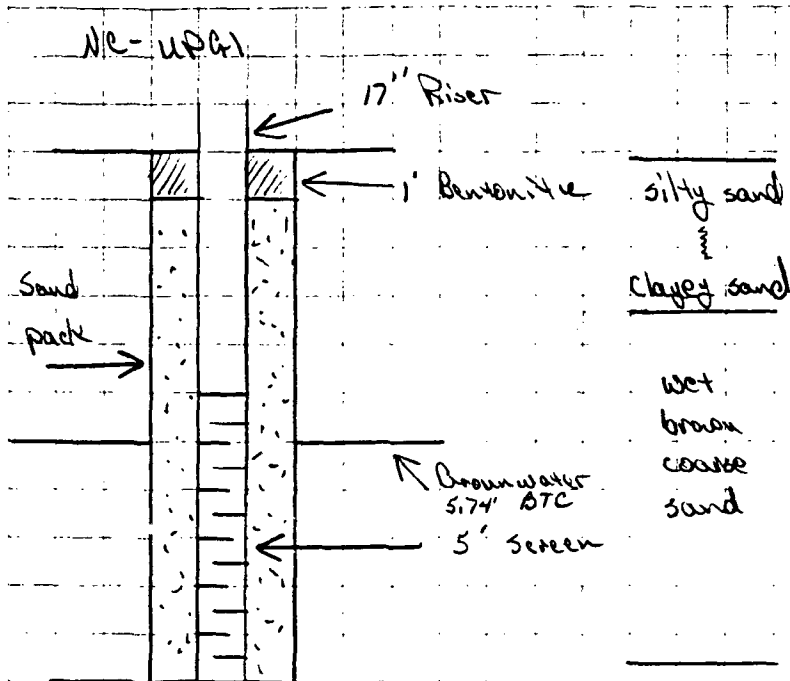 NC-UPG1
17" Riser
1' Bentonite
silty sand
clayey sand
Sand
pack
wet
brown
coarse
sand
Grounwater
5.74' BTC
5' Screen